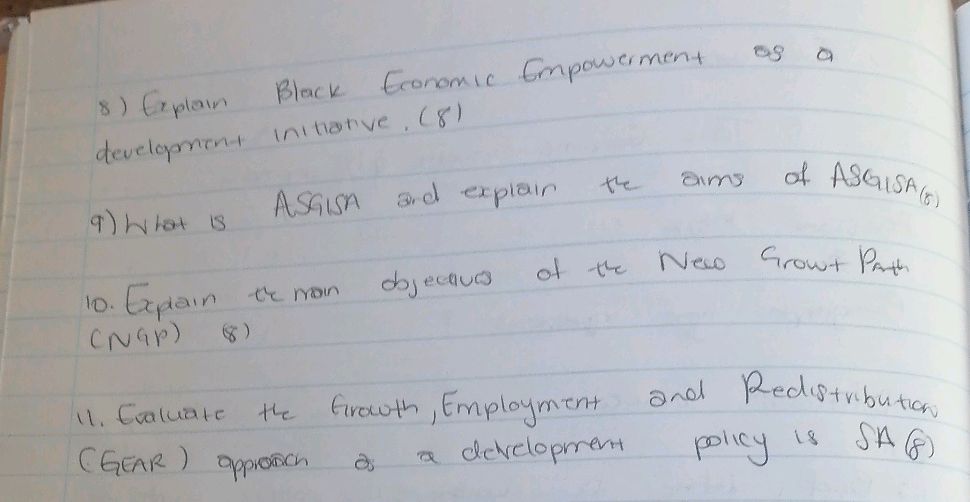 8) Explain Black Economic Empowerment as a
development initiative. (8)
9) What is ASGISA and explain the aims of ASGISA (8)
10. Explain the main objectives of the New Growt Path
(NGP) 8)
11. Evaluate the Growth, Employment and Redistribution
(GEAR) approach as a development policy is SA (8)